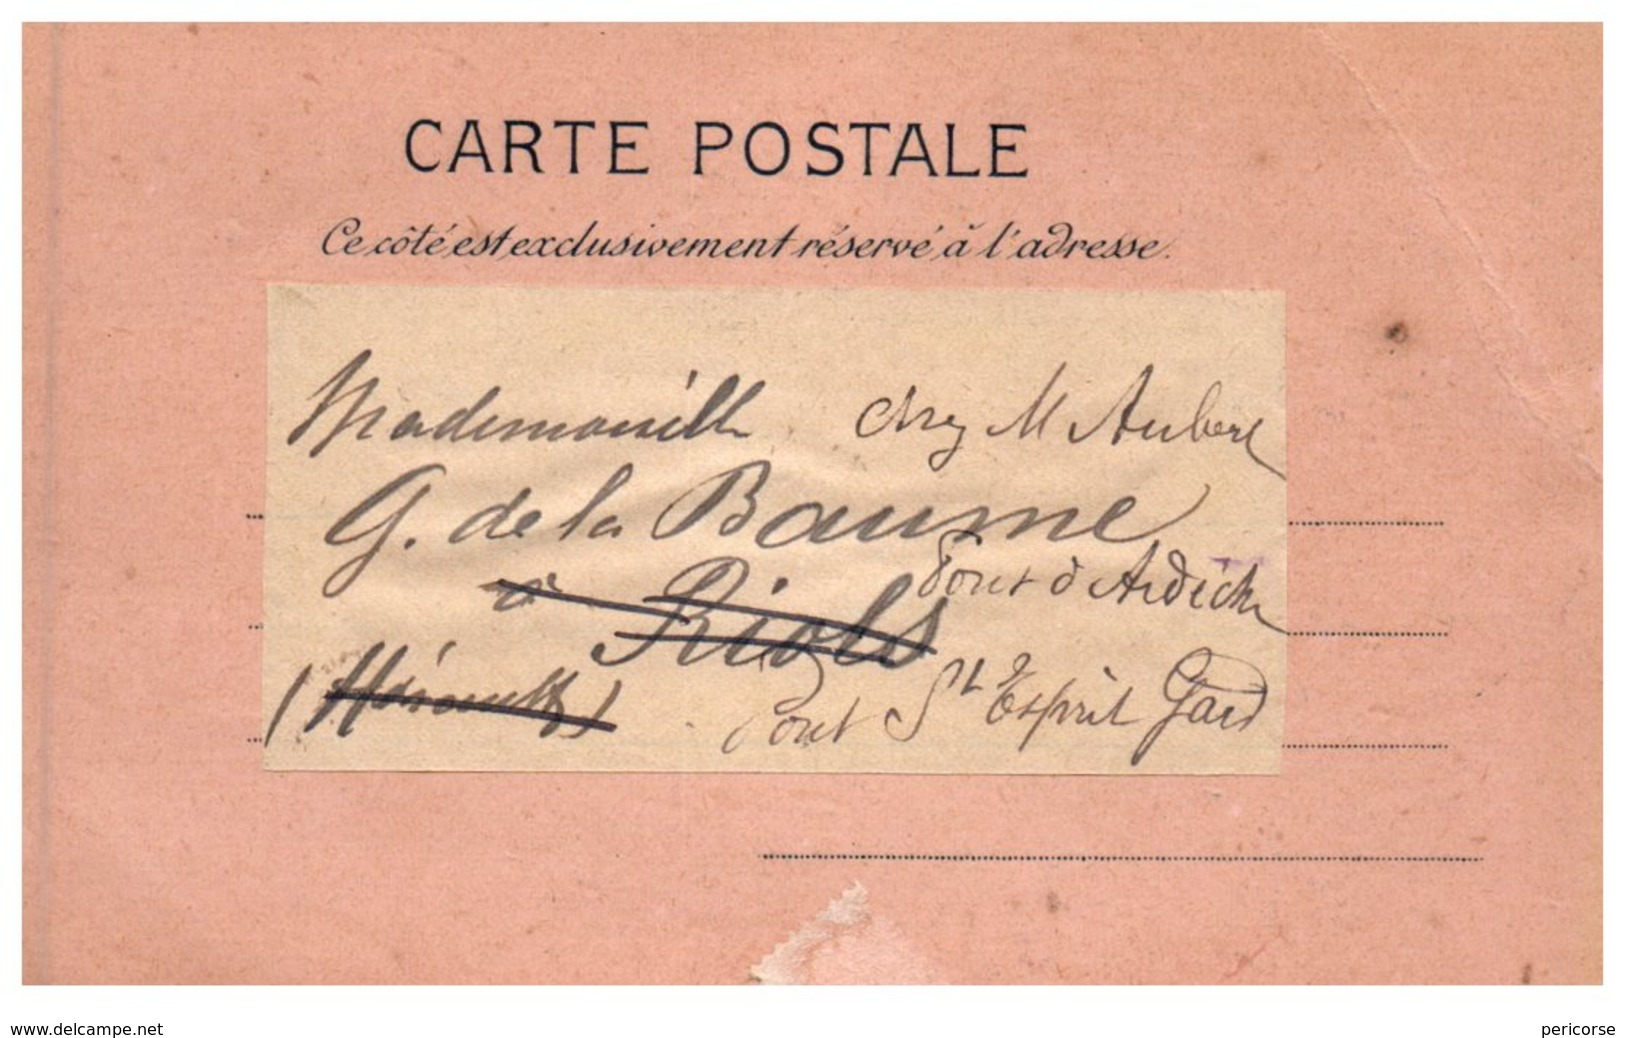 CARTE POSTALE
Ce côté est exclusivement réservé à l'adresse.
Mademoiselle chez M Aubert
G. de la Baume
à Riols
Pont d'Ardèche
(Hérault)
Pont St Esprit Gard
www.delcampe.net
pericorse